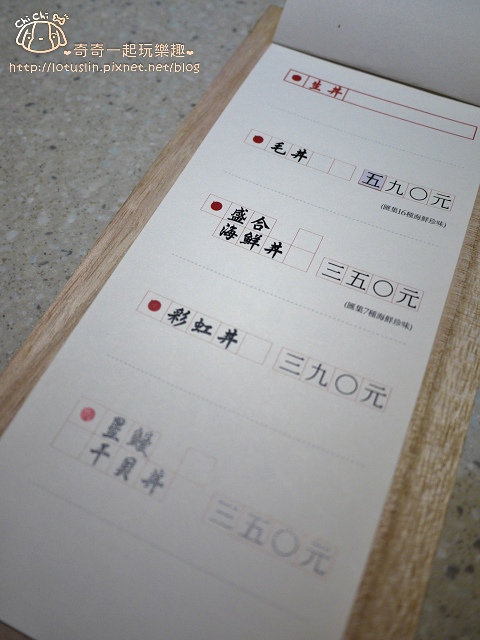 Chi Chi
❤奇奇一起玩樂趣❤
http://lotuslin.pixnet.net/blog
生丼
毛丼 五九〇元
(匯集16種海鮮珍味)
盛合
海鮮丼 三五〇元
(匯集7種海鮮珍味)
彩虹丼 三九〇元
星鰻
干貝丼 三五〇元